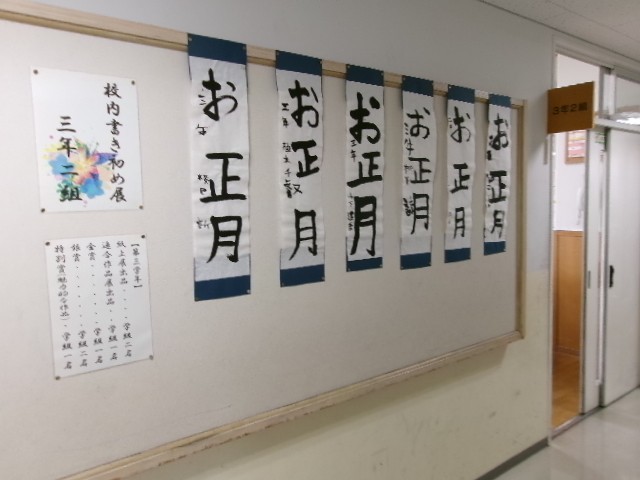 校内書き初め展
三年二組
【第三学年】
紙上展出品・・・・学級二名
連合作品展出品・・学級一名
金賞・・・・・・・学級一名
銀賞・・・・・・・学級二名
特別賞(魅力的な作品)・学級一名
お正月
三年
お正月
三年
お正月
三年
お正月
三年
お正月
お正月
3年2組